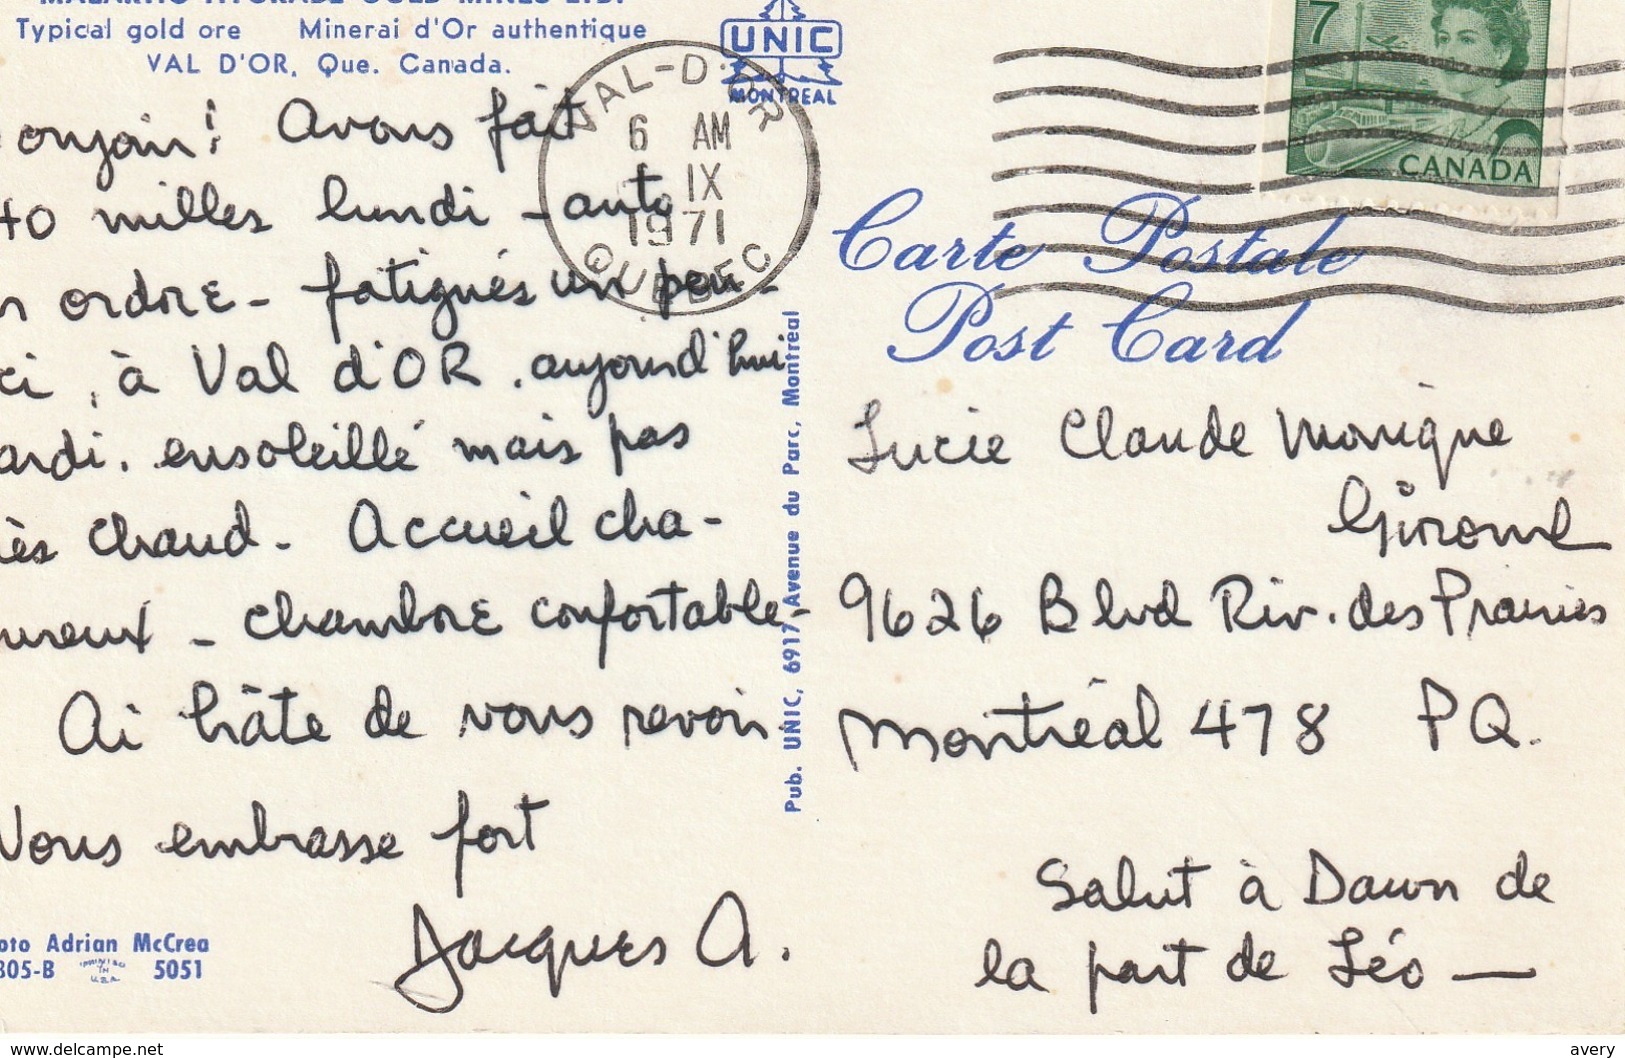 MALARTIC HYGRADE GOLD MINES LTD.
Typical gold ore Minerai d'Or authentique
VAL D'OR, Que. Canada.
UNIC
MONTREAL
VAL-D'OR
6 AM
IX
1971
QUEBEC
7
CANADA
Carte Postale
Post Card
onjoin! Avons fait
40 milles lundi - auto
n ordre - fatigués un peu -
ci, à Val d'OR, aujourd'hui
ardi, ensoleillé mais pas
ès chaud - Accueil cha-
ureux - chambre confortable -
Ai hâte de vous revoir
Vous embrasse fort
Jacques A.
oto Adrian McCrea
805-B PRINTED IN U.S.A. 5051
Pub. UNIC, 6917 Avenue du Parc, Montreal
Lucie Claude Monique
Girome
9626 Blvd Riv. des Prairies
Montréal 478 PQ.
Salut à Dawn de
la part de Léo —
delcampe.net
avery